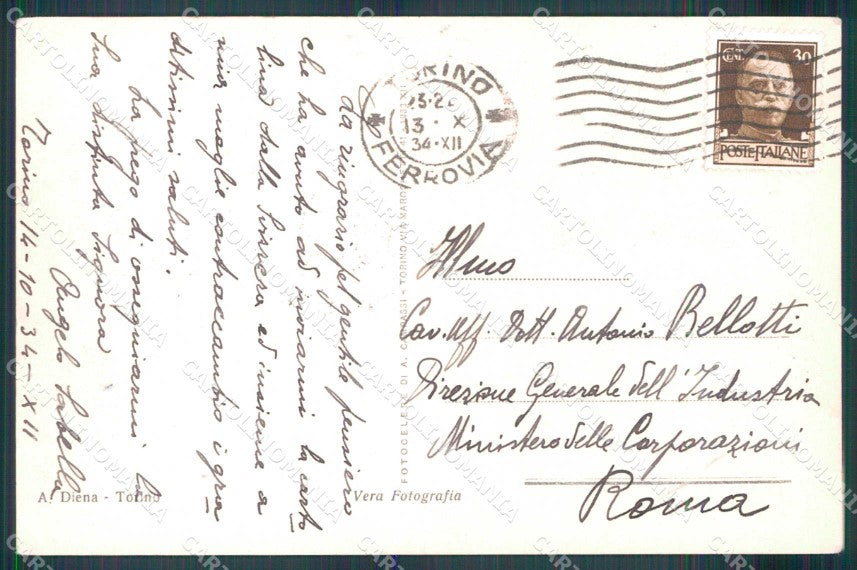 La ringrazio pel gentile pensiero
che ha avuto ad inviarmi la carto
lina dalla Svizzera ed insieme a
mia moglie contraccambio i gra
ditissimi saluti.
La prego di ossequiarmi la
Sua distinta Signora
Angelo
Torino 14-10-34-XII
A. Diena - Torino
Vera Fotografia
FOTOCELERE DI A. CAMPASSI - TORINO VIA
TORINO
FERROVIA
13 · X
34·XII
CENT. 30
POSTE ITALIANE
Illmo
Cav. Uff. Dott. Antonio Bellotti
Direzione Generale dell'Industria
Ministero delle Corporazioni
Roma
CARTOLINOMANIA